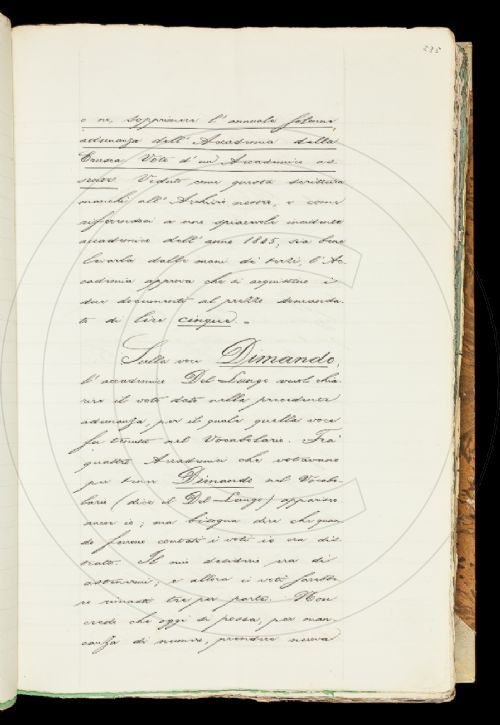 235
o no, sopprimere l'annuale solenne
adunanza dell'Accademia della
Crusca, Voto d'un Accademico as-
sente. Veduto come questa scrittura
manchi all'Archivio nostro, e come
riferendosi a uno spiacevole incidente
accademico dell'anno 1885, sia bene
levarla dalle mani di terzi, l'Ac-
cademia approva che si acquistino i
due documenti al prezzo domanda-
to di lire cinque. -
Sulla voce Dimando,
l'accademico Del Lungo vuol chia-
rire il voto dato nella precedente
adunanza, per il quale quella voce
fu tenuta nel Vocabolario. Fra'
quattro Accademici che votavano
per tener Dimando nel Vocabo-
lario (dice il Del Lungo) apparisco
ancor io; ma bisogna dire che quan-
do furono contati i voti io era dis-
tratto. Il mio desiderio era di
astenermi; e allora i voti sarebbe-
ro rimasti tre per parte. Non
credo che oggi si possa, per man-
canza di numero, prendere nuova